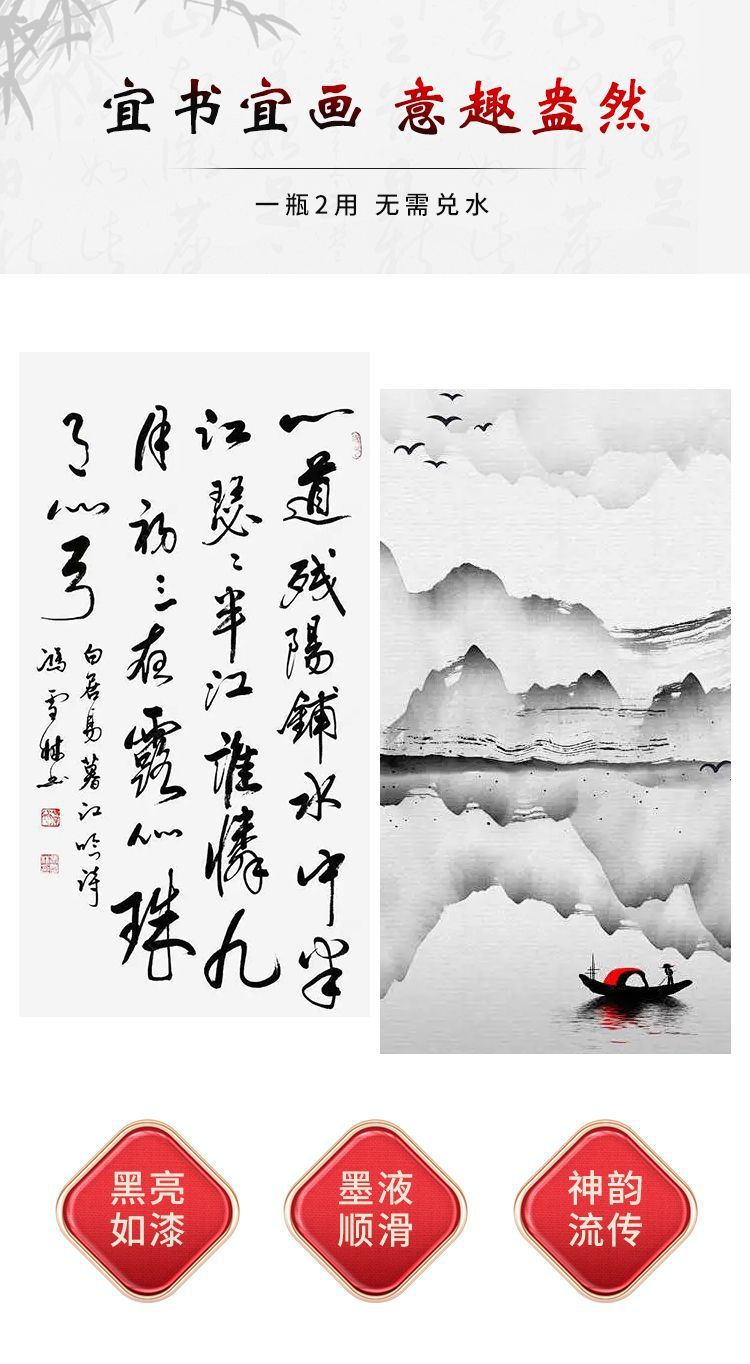 宜书宜画 意趣盎然
一瓶2用 无需兑水
一道残陽鋪水中半
江瑟々半江誰憐九
月初三夜露似珠
月似弓
白居易暮江吟詩
馮雪林书
黑亮
如漆
墨液
顺滑
神韵
流传